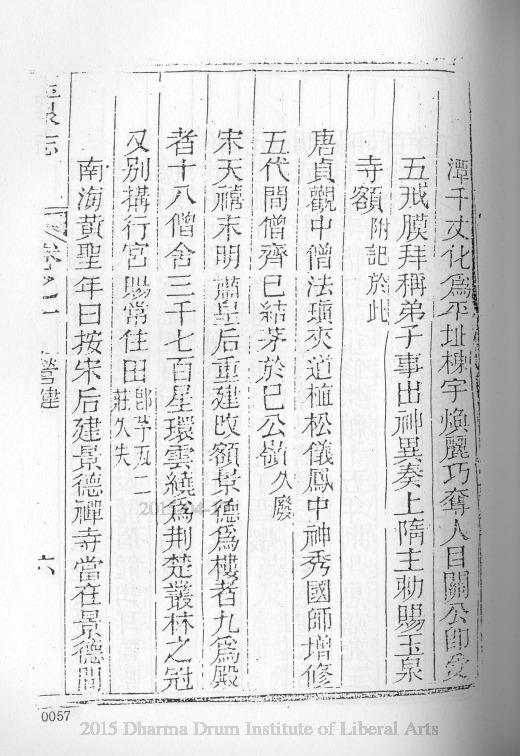 潭千丈化為平址棟宇煥麗巧奪人目關公卽受
五戒膜拜稱弟子事出神異奏上隋主勅賜玉泉
寺額附記於此
唐貞觀中僧法瑱夾道植松儀鳳中神秀國師增修
五代間僧齊已結茅於已公嶺久廢
宋天禧末明肅皇后重建改額景德為樓者九為殿
者十八僧舍三千七百星環雲繞為荆楚叢林之冠
又別搆行宮賜常住田卽茅五二莊久失
南海黃聖年曰按宋后建景德禪寺當在景德間
玉泉志 卷之一 營建 六
0057
2015 Dharma Drum Institute of Liberal Arts